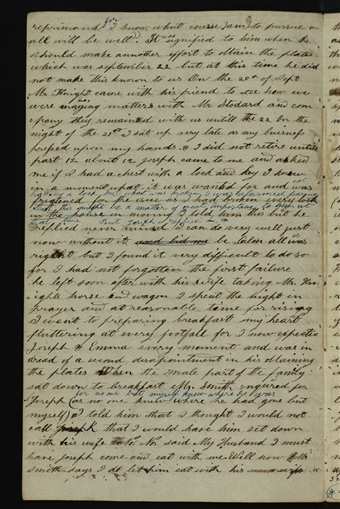 for
reprimand I know what course I am to pursue an
all will be well. He signified to him when he
should make another effort to obtain the plates
which was september 22 but at this time he did
not make this known to us On the 20th of Sept
Mr Knight came with his friend to see how we
were managing matters with Mr Stodard and com
pany they remained with us untill the 22 On the
night of the 21st I sat up very late as my buisness
pressed upon my hands & I did not retire untill
past 12 about 12 Joseph came to me and asked
me if I had a chest with a lock and key I knew
in a moment what it was wanted for and was
in the house
replied never mind I can do very well just
now without it be calm all was
right but I found it very difficult to do so
for I had not forgotten the first failure
he left soon after with his wife taking Mr Kn
ights horse and wagon I spent the night in
prayer and at reasonable time for rising
I went to preparing breakfast my heart
fluttering at every footfall for I now expected
Joseph & Emma every moment and was in
dread of a second disapointment in his obtaining
the plates When the male part of the family
sat down to breakfast Mr. Smith enquired for
for no one but myself knew where he was
Joseph (as no one knew where he had gone but
myself) I told him that I thought I would not
call Joseph that I would have him set down
with his wife No No said My Husband I must
have Joseph come and eat with me Well now Mr
Smith says I do let him eat with his wife